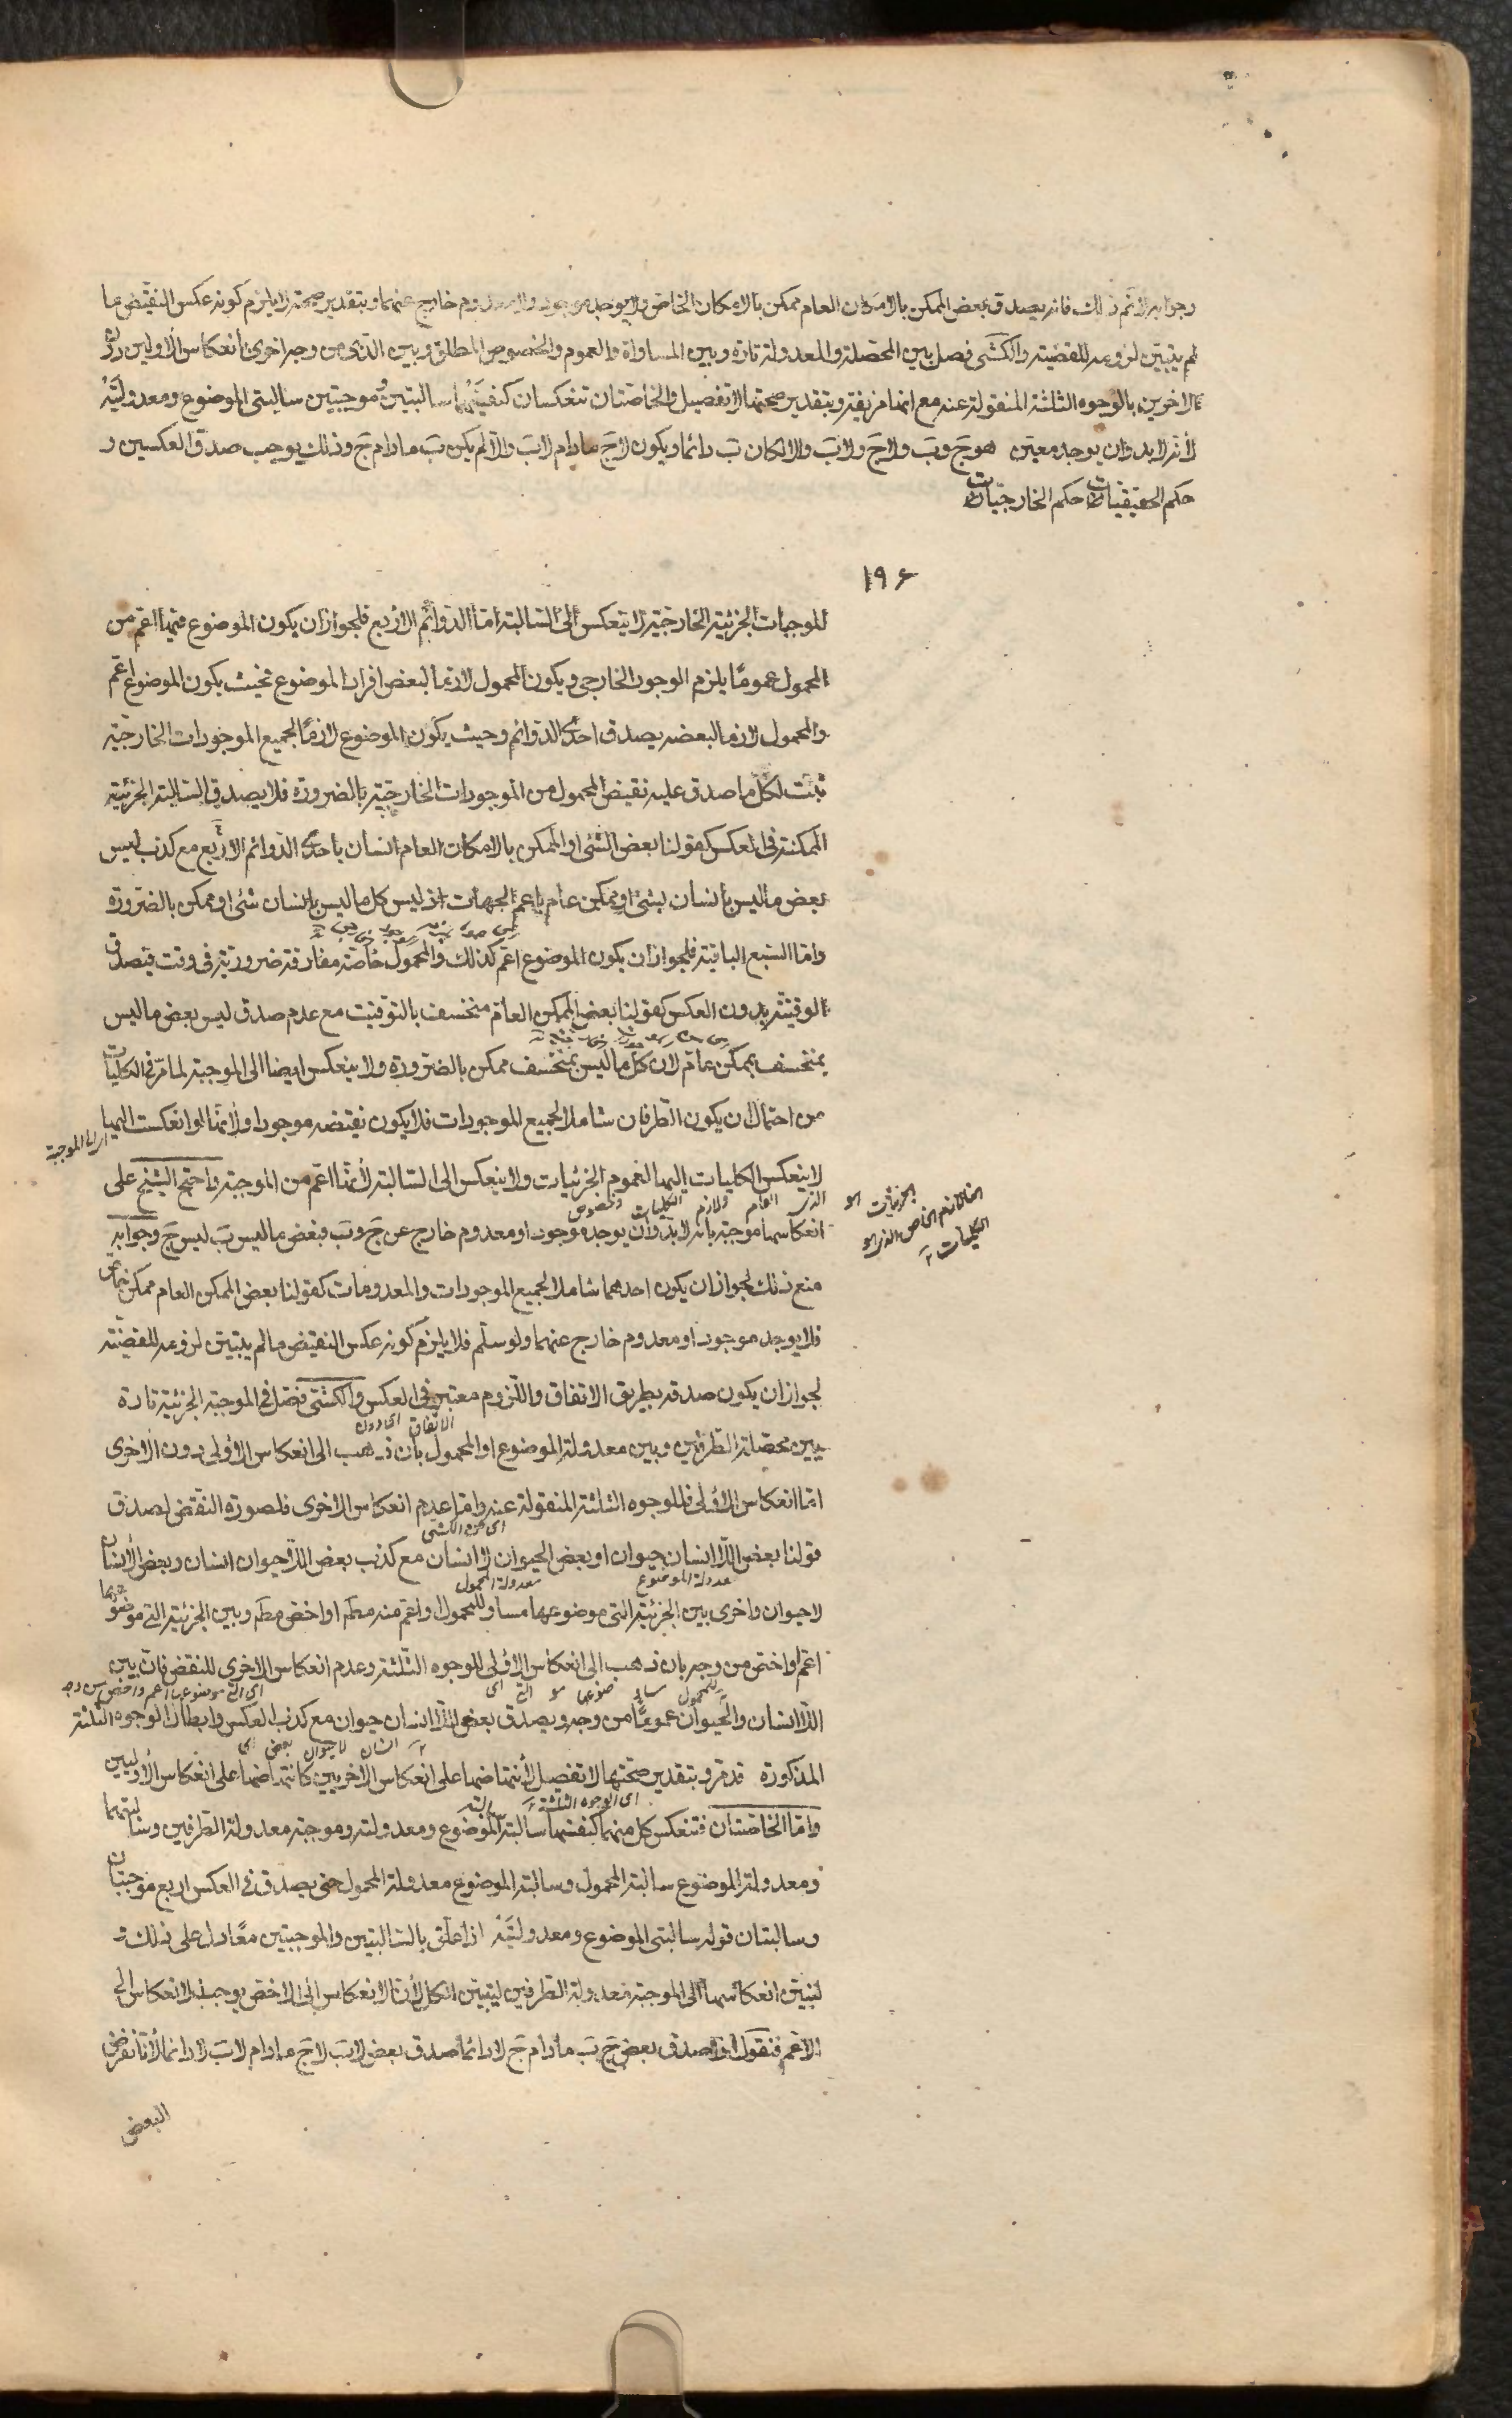 وجوابه لا نم ذلك فانه يصدق بعض الممكن بالامكان العام ممكن بالامكان الخاص ولا يوجد موجود ولا معدوم خارج عنهما وبتقدير صحته لا يلزم كونه عكس النقيض ما
لم يتبين لزومه للقضية والكشى فصل بين المحصلة والمعدولة تارة وبين المساواة والعموم والخصوص المطلق وبين الذى من وجه اخرى بانعكاس الاوليين دون
الاخريين بالوجوه الثلثة المنقولة عنه مع انها مزيفة وبتقدير صحتها لا تفصيل والخاصتان تنعكسان كنفسيهما سالبتين وموجبتين سالبتى الموضوع ومعدولتيه
لأنه لا بد وان يوجد معين هو ج وب ولا ج ولا ب والا لكان ب دائما ويكون لا ج مادام لا ب والا لم يكن ب مادام ج وذلك يوجب صدق العكسين و
حكم الحقيقيات حكم الخارجيات
١٩۶
الموجبات الجزئية الخارجية لا ينعكس الى السالبة اما الدوائم الاربع فلجواز ان يكون الموضوع فيها اعم من
المحمول عموما يلزم الوجود الخارجى ويكون المحمول لازما لبعض افراد الموضوع فحيث يكون الموضوع اعم
والمحمول لازما لبعضه يصدق احدى الدوائم وحيث يكون الموضوع لازما لجميع الموجودات الخارجية
ثبت لكل ما صدق عليه نقيض المحمول من الموجودات الخارجية بالضرورة فلا يصدق السالبة الجزئية
الممكنة فى العكس كقولنا بعض الشئ او الممكن بالامكان العام انسان باحدى الدوائم الاربع مع كذب ليس
بعض ما ليس بانسان بشئ او ممكن عام باعم الجهات اذ ليس كل ما ليس بانسان شئ او ممكن بالضرورة
واما السبع الباقية فلجواز ان يكون الموضوع اعم كذلك والمحمول خاصة مفارقة ضرورية فى وقت فيصدق
الوقتية بدون العكس كقولنا بعض الممكن العام منخسف بالتوقيت مع عدم صدق ليس بعض ما ليس
بمنخسف بممكن عام لان كل ما ليس بمنخسف ممكن بالضرورة ولا ينعكس ايضا الى الموجبة لما مر فى الكليات
من احتمال ان يكون الطرفان شاملا لجميع الموجودات فلا يكون نقيضه موجودا ولانها لو انعكست اليها
اى الى الموجبة
لا ينعكس الكليات اليها لعموم الجزئيات ولا ينعكس الى السالبة لأنها اعم من الموجبة واحتج الشيخ على
الذى العام ولازم الكليات والخصوص
انعكاسها موجبة بانه لا بد وان يوجد موجود او معدوم خارج عن ج وب فبعض ما ليس ب ليس ج وجوابه
منع ذلك لجواز ان يكون احدهما شاملا لجميع الموجودات والمعدومات كقولنا بعض الممكن العام ممكن خاص
فلا يوجد موجود او معدوم خارج عنهما ولو سلم فلا يلزم كونه عكس النقيض ما لم يتبين لزومه للقضية
لجواز ان يكون صدقه بطريق الاتفاق واللزوم معتبر فى العكس والكشى فصل فى الموجبة الجزئية تارة
بين محصلة الطرفين وبين معدولة الموضوع او المحمول بأن ذهب الى انعكاس الاولى دون الاخرى
اما انعكاس الاولى فللوجوه الثلثة المنقولة عنه واما عدم انعكاس الاخرى فلصورة النقض لصدق
اى من الكشى
قولنا بعض اللا انسان حيوان او بعض الحيوان لا انسان مع كذب بعض اللا حيوان انسان وبعض الانسان
معدولة الموضوع معدولة المحمول
لا حيوان واخرى بين الجزئية التى موضوعها مساو للمحمول او اعم منه مطم او اخص مطم وبين الجزئية التى موضوعها
اعم او اخص من وجه بان ذهب الى انعكاس الاولى للوجوه الثلثة وعدم انعكاس الاخرى للنقض فان بين
اى التى موضوعها اعم واخص من وجه
اللا انسان والحيوان عموما من وجه ويصدق بعض اللا انسان حيوان مع كذب العكس وابطال الوجوه الثلثة
اى بعض لا حيوان انسان
المذكورة قد مر وبتقدير صحتها لا تفصيل لأنتهاضها على انعكاس الاخريين كانتهاضها على انعكاس الاوليين
اى الوجوه الثلثة
واما الخاصتان فتنعكس كل منهما كنفسها سالبة الموضوع ومعدولته وموجبة معدولة الطرفين وسالبتهما
ومعدولة الموضوع سالبة المحمول وسالبة الموضوع معدولة المحمول حتى يصدق فى العكس اربع موجبتان
وسالبتان قوله سالبتى الموضوع ومعدولتيه اذا علق بالسالبتين والموجبتين معا دل على ذلك
لنبين انعكاسها الى الموجبة معدولة الطرفين ليتبين الكل لأن الانعكاس الى الاخص يوجب الانعكاس الى
الاعم فنقول اذا صدق بعض ج ب مادام ج لا دائما صدق بعض لا ب لا ج مادام لا ب لا دائما لأنا نفرض
البعض